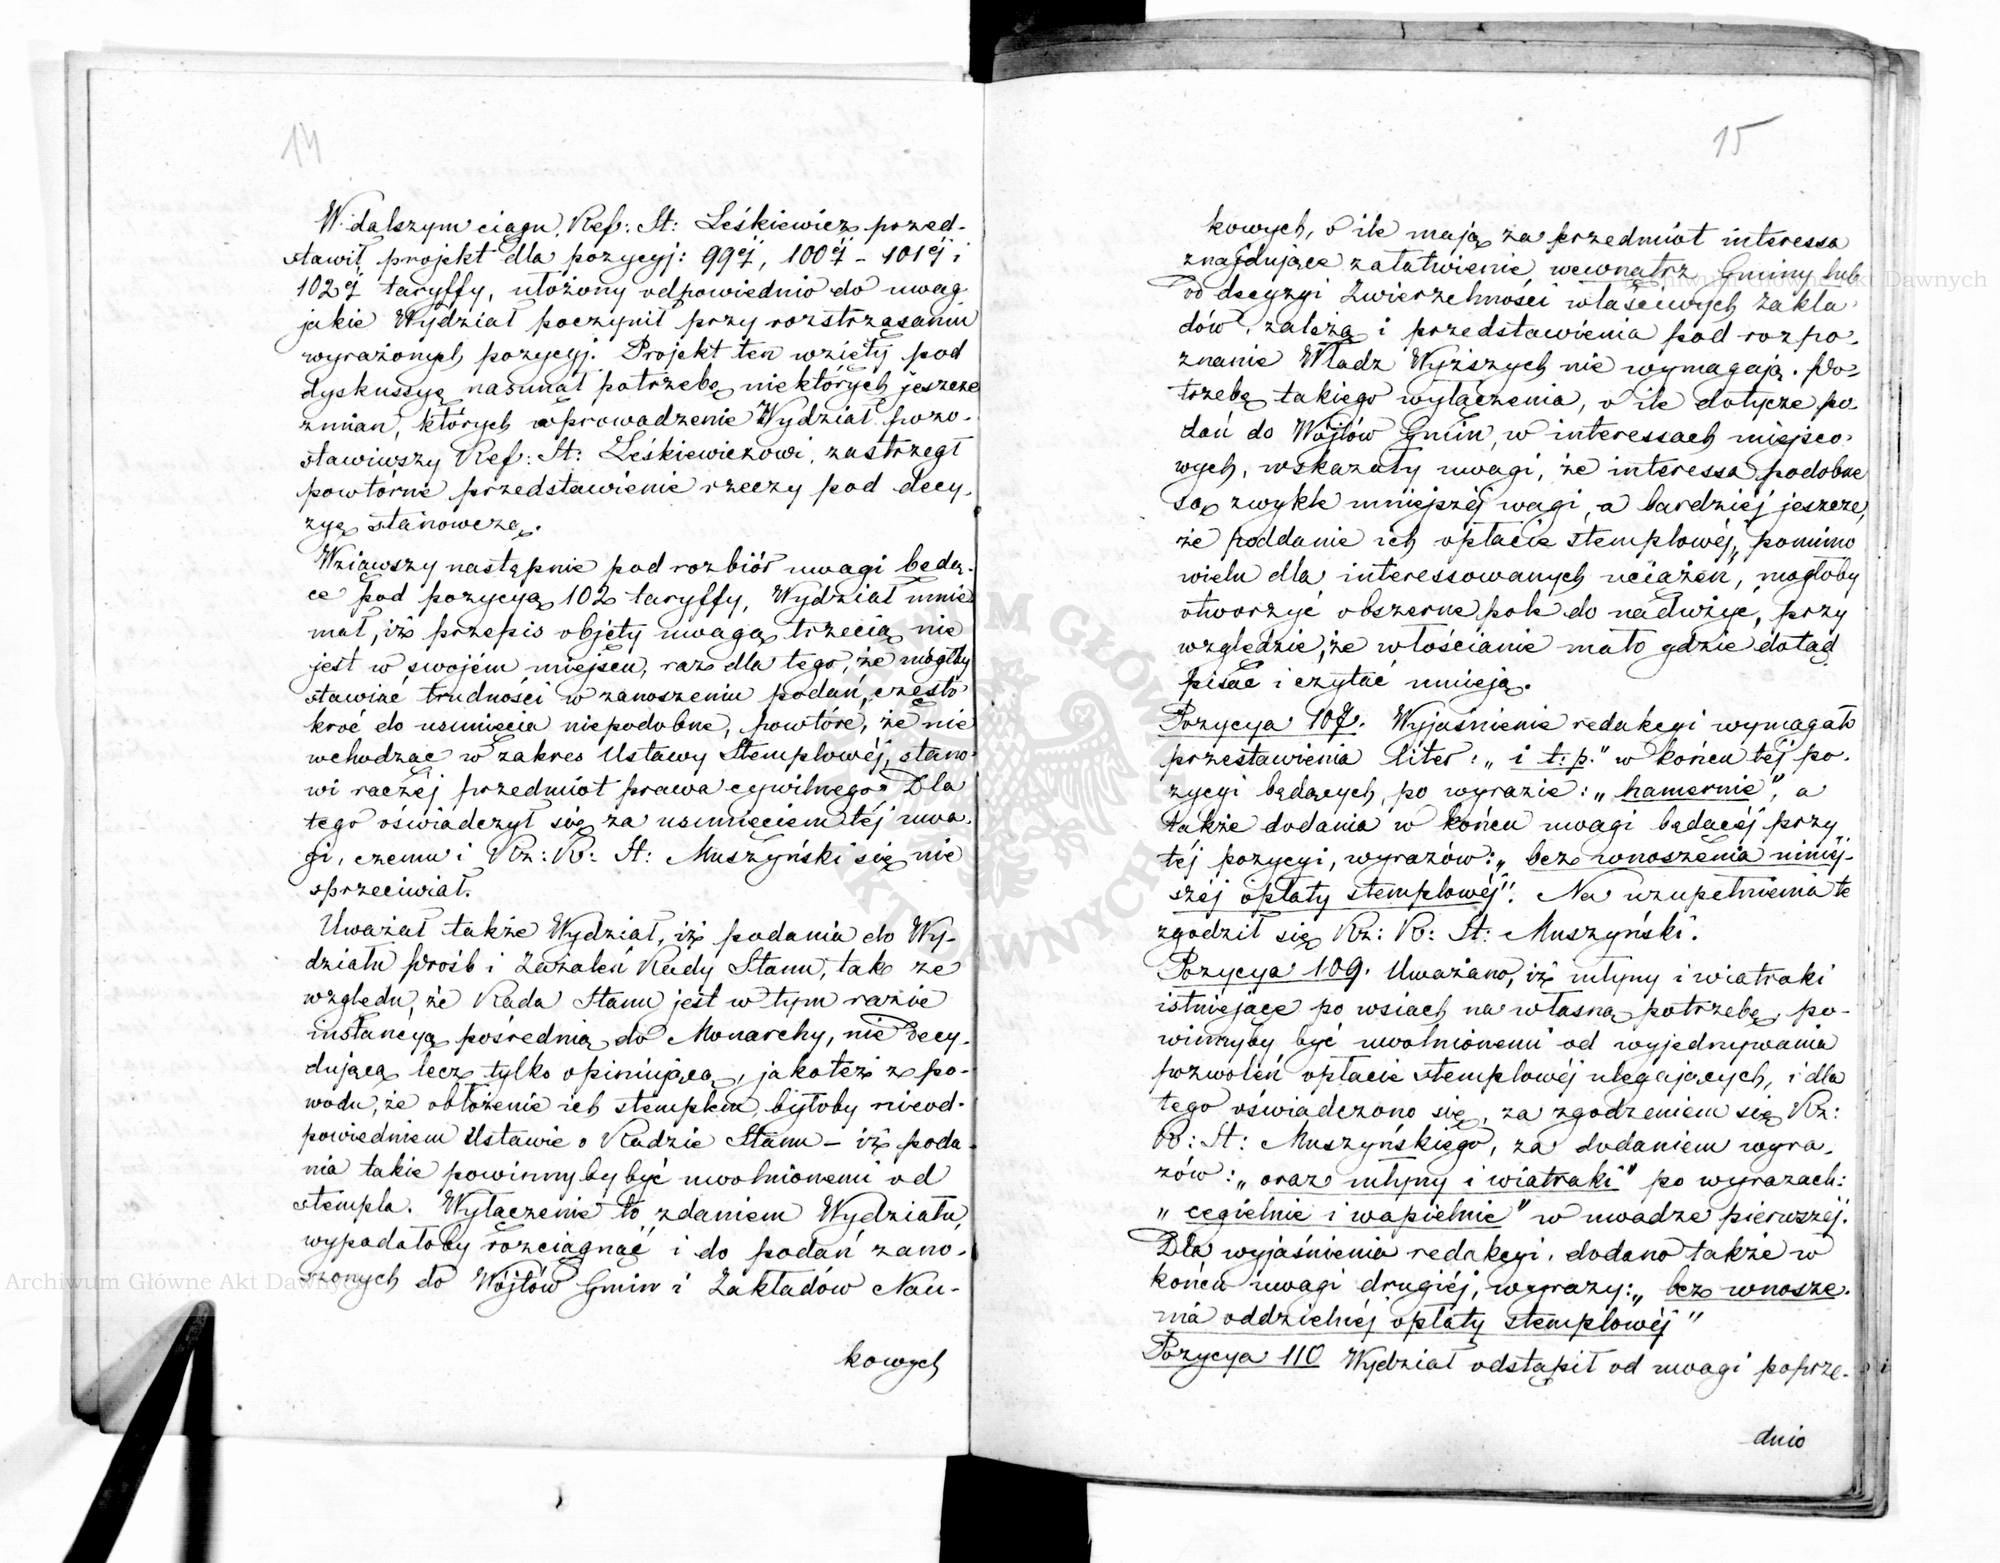 14
W dalszym ciągu, Ref: St: Leśkiewicz przed-
stawił projekt dla pozycyj: 99éj, 100éj - 101éj i
102éj taryffy, ułożony odpowiednio do uwag
jakie Wydział poczynił przy rozstrząsaniu
wyrażonych pozycyj. Projekt ten wzięty pod
dyskussyę nasunął potrzebę niektórych jeszcze
zmian, których wprowadzenie Wydział pozo-
stawiwszy Ref: St: Leśkiewiczowi, zastrzegł
powtórne przedstawienie rzeczy pod decy-
zyę stanowczą.
Wziąwszy następnie pod rozbiór uwagi będą-
ce pod pozycyą 102 taryffy, Wydział mnie-
mał, iż przepis objęty uwagą trzecią nie
jest w swojém miejscu, raz dla tego, że mógłby
stawiać trudności w zanoszeniu podań, często
kroć do usunięcia niepodobne, powtóre, że nie
wchodząc w zakres Ustawy Stemplowéj, stano-
wi raczéj przedmiot prawa cywilnego. Dla
tego oświadczył się za usunięciem téj uwa-
gi, czemu i Rz: R: St: Muszyński się nie
sprzeciwiał.
Uważał także Wydział, iż podania do Wy-
działu Próśb i Zażaleń Rady Stanu, tak ze
względu, że Rada Stanu jest w tym razie
instancyą pośrednią do Monarchy, nie decy-
dującą lecz tylko opiniującą, jakotéż z po-
wodu, że obłożenie ich stemplem byłoby nieod-
powiedniem Ustawie o Radzie Stanu - iż poda-
nia takie powinnyby być uwolnionemi od
stempla. Wyłączenie to, zdaniem Wydziału,
wypadałoby rozciągnąć i do podań zano-
szonych do Wójtów Gmin i Zakładów Nau-
kowych
15
kowych, o ile mają za przedmiot interessa
znajdujące załatwienie wewnątrz Gminy lub
od decyzyi Zwierzchności właściwych zakła-
dów, zależą i przedstawienia pod rozpo-
znanie Władz Wyższych nie wymagają. Po-
trzebę takiego wyłączenia, o ile dotycze po-
dań do Wójtów Gmin, w interessach miejsco-
wych, wskazały uwagi, że interessa podobne
są zwykle mniejszéj wagi, a bardziéj jeszcze,
że poddanie ich opłacie stemplowéj, pomimo
wielu dla interessowanych uciążeń, mogłoby
otworzyć obszerne pole do nadużyć, przy
względzie, że włościanie mało gdzie dotąd
pisać i czytać umieją.
Pozycya 107. Wyjaśnienie redakcyi wymagało
przestawienia liter: „i t: p." w końcu téj po-
zycyi będących, po wyrazie: „hamernie", a
także dodania w końcu uwagi będącéj przy
téj pozycyi, wyrazów: „bez wnoszenia niniéj-
széj opłaty stemplowéj". Na uzupełnienia te
zgodził się Rz: R: St: Muszyński.
Pozycya 109. Uważano, iż młyny i wiatraki
istniejące po wsiach na własną potrzebę, po-
winnyby być uwolnionemi od wyjednywania
pozwoleń opłacie stemplowéj ulegających, i dla
tego oświadczono się, za zgodzeniem się Rz:
R: St: Muszyńskiego, za dodaniem wyra-
zów: „oraz młyny i wiatraki" po wyrazach:
„cegielnie i wapielnie" w uwadze pierwszéj.
Dla wyjaśnienia redakcyi, dodano także w
końcu uwagi drugiéj, wyrazy: „bez wnosze-
nia oddzielnéj opłaty stemplowéj"
Pozycya 110 Wydział odstąpił od uwagi poprze-
dnio
Archiwum Główne Akt Dawnych